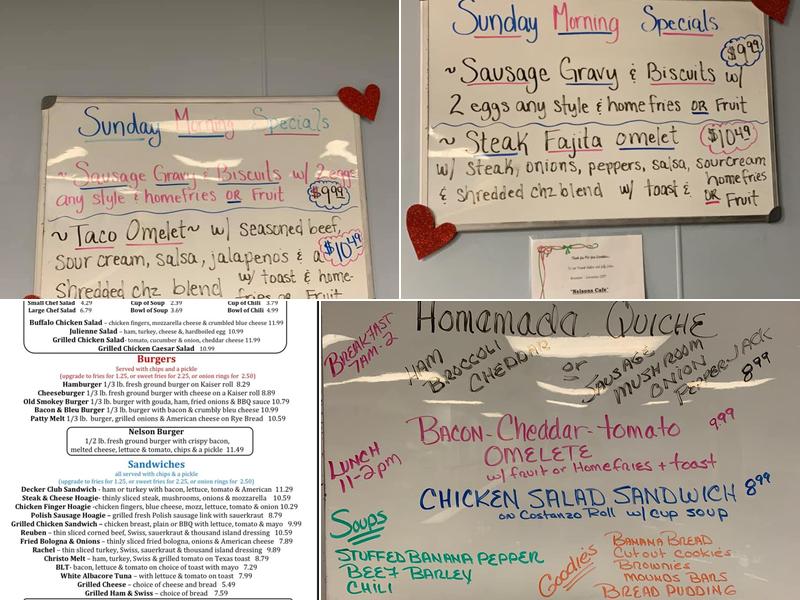 Sunday Morning Specials
~ Sausage Gravy & Biscuits w/ 2 eggs
any style & homefries OR Fruit
$9.99
~ Taco Omelet ~ w/ seasoned beef,
sour cream, salsa, jalapeños & a
$10.49
Shredded chz blend w/ toast & home-
fries or Fruit
Sunday Morning Specials
$9.99
~ Sausage Gravy & Biscuits w/
2 eggs any style & homefries OR Fruit
~ Steak Fajita omelet $10.49
w/ steak, onions, peppers, salsa, sourcream
& shredded chz blend w/ toast & homefries
OR Fruit
"Nelsons Cafe"
Small Chef Salad 4.29 Cup of Soup 2.39 Cup of Chili 3.79
Large Chef Salad 6.79 Bowl of Soup 3.69 Bowl of Chili 4.99
Buffalo Chicken Salad – chicken fingers, mozzarella cheese & crumbled blue cheese 11.99
Julienne Salad – ham, turkey, cheese, & hardboiled egg 10.99
Grilled Chicken Salad - tomato, cucumber & onion, cheddar cheese 11.99
Grilled Chicken Caesar Salad 10.99
Burgers
Served with chips and a pickle
(upgrade to fries for 1.25, or sweet fries for 2.25, or onion rings for 2.50)
Hamburger 1/3 lb. fresh ground burger on Kaiser roll 8.29
Cheeseburger 1/3 lb. fresh ground burger with cheese on a Kaiser roll 8.89
Old Smokey Burger 1/3 lb. burger with gouda, ham, fried onions & BBQ sauce 10.79
Bacon & Bleu Burger 1/3 lb. burger w/ bacon & crumbly bleu cheese 10.99
Patty Melt 1/3 lb. burger, grilled onions & American cheese on Rye Bread 10.59
Nelson Burger
1/2 lb. fresh ground burger with crispy bacon,
melted cheese, lettuce & tomato, chips & a pickle 11.49
Sandwiches
all served with chips & a pickle
(upgrade to fries for 1.25, or sweet fries for 2.25, or onion rings for 2.50)
Decker Club Sandwich - ham or turkey with bacon, lettuce, tomato & American 11.29
Steak & Cheese Hoagie- thinly sliced steak, mushrooms, onions & mozzarella 10.59
Chicken Finger Hoagie -chicken fingers, blue cheese, mozz, lettuce, tomato & onion 10.29
Polish Sausage Hoagie – grilled fresh Polish sausage link with sauerkraut 8.79
Grilled Chicken Sandwich – chicken breast, plain or BBQ with lettuce, tomato & mayo 9.99
Reuben – thin sliced corned beef, Swiss, sauerkraut & thousand island dressing 10.59
Fried Bologna & Onions – thinly sliced fried bologna, onions & American cheese 7.89
Rachel – thin sliced turkey, Swiss, sauerkraut & thousand island dressing 9.89
Christo Melt – ham, turkey, Swiss & grilled tomato on Texas toast 8.79
BLT- bacon, lettuce & tomato on choice of toast with mayo 7.29
White Albacore Tuna – with lettuce & tomato on toast 7.99
Grilled Cheese – choice of cheese and bread 5.49
Grilled Ham & Swiss – choice of bread 7.59
Homemada QUICHE
BREAKFAST
7AM-2
HAM
BROCCOLI
CHEDDAR
or
SAUSAGE
MUSHROOM
ONION
PEPPERJACK
8.99
LUNCH
11-2pm
BACON-Cheddar-tomato 9.99
OMELETE
w/ fruit or Homefries + toast
CHICKEN SALAD SANDWICH 8.99
on Costanzo Roll w/ cup soup
Soups
STUFFED BANANA PEPPER
BEEF BARLEY
CHILI
Goodie's
BANANA BREAD
Cutout cookies
Brownies
MOUNDS BARS
BREAD PUDDING